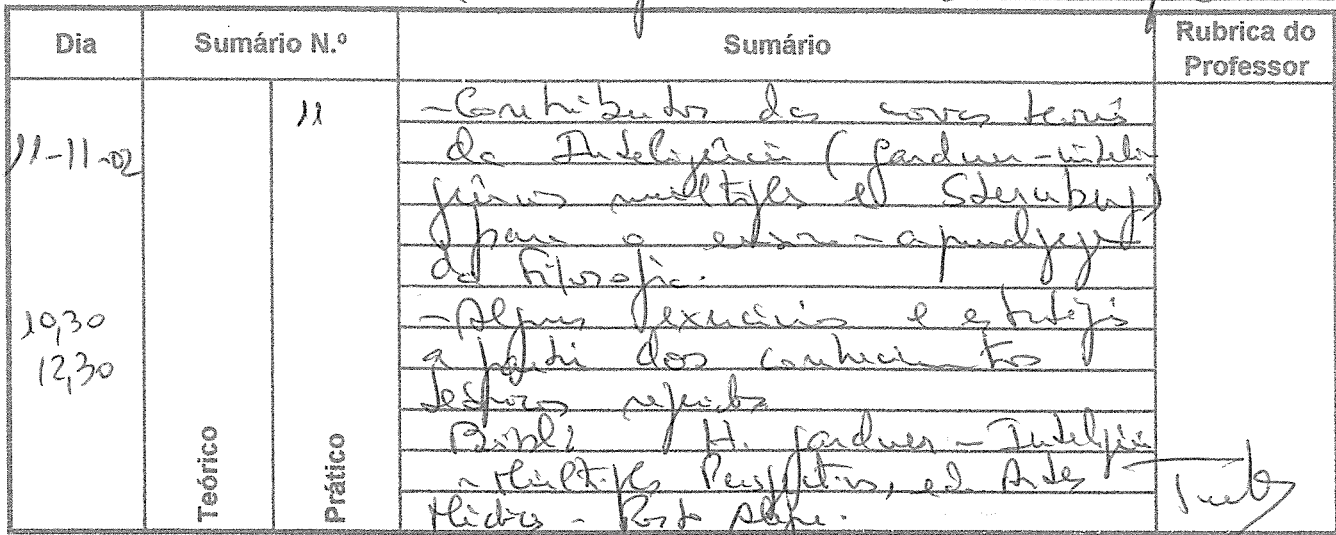 Dia Sumário N.º Sumário Rubrica do Professor
11
- Contributos das novas teorias
11-11-02
da Inteligência (Gardner - inteli
gências múltiplas e Sternberg)
para o ensino - aprendizagem
da Filosofia.
10,30
- Alguns exercícios e estratégias
12,30
a partir dos conhecimentos
teóricos referidos
Bibli H. Gardner - Inteligência
- Múltiplas Perspectivas, ed. Artes
Médicas - Porto Alegre.
Teórico
Prático